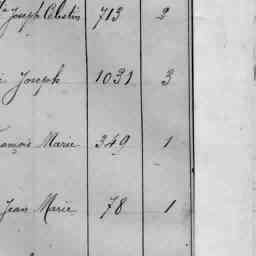 Joseph Célestin 713 2
Joseph 1031 3
Marie 349 1
Jean Marie 78 1